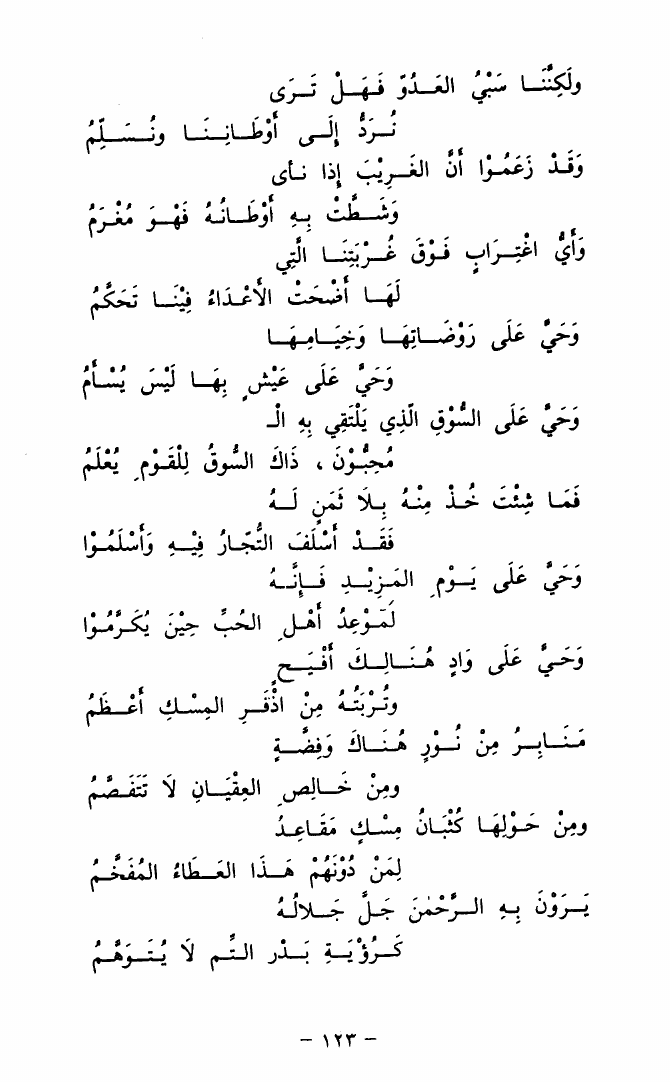 ولَكِنَّنَا سَبْيُ العَدُوِّ فَهَلْ تَرَى
نُرَدُّ إِلَى أَوْطَانِنَا ونُسَلِّمُ
وَقَدْ زَعَمُوْا أَنَّ الغَرِيْبَ إِذا نأى
وَشَطَّتْ بِهِ أَوْطَانُهُ فَهْوَ مُغْرَمُ
وَأَيُّ اغْتِرَابٍ فَوْقَ غُرْبَتِنَا الَّتِي
لَهَا أَضْحَتْ الأَعْدَاءُ فِيْنَا تَحَكَّمُ
وَحَيَّ عَلَى رَوْضَاتِهَا وَخِيَامِهَا
وَحَيَّ عَلَى عَيْشٍ بِهَا لَيْسَ يُسْأَمُ
وَحَيَّ عَلَى السُّوْقِ الَّذِي يَلْتَقِي بِهِ الْـ
مُحِبُّوْنَ ، ذَاكَ السُّوقُ لِلْقَوْمِ يُعْلَمُ
فَمَا شِئْتَ خُذْ مِنْهُ بِلاَ ثَمَنٍ لَهُ
فَقَدْ أَسْلَفَ التُّجَّارُ فِيْهِ وَأَسْلَمُوْا
وَحَيَّ عَلَى يَوْمِ المَزِيْدِ فَإِنَّهُ
لَمَوْعِدُ أَهْلِ الحُبِّ حِيْنَ يُكَرَّمُوْا
وَحَيَّ عَلَى وَادٍ هُنَالِكَ أَفْيَحٍ
وتُرْبَتُهُ مِنْ اذْفَرِ المِسْكِ أَعْظَمُ
مَنَابِرُ مِنْ نُوْرٍ هُنَاكَ وَفِضَّةٍ
ومِنْ خَالِصِ العِقْيَانِ لاَ تَتَفَصَّمُ
ومِنْ حَوْلِهَا كُثْبَانُ مِسْكٍ مَقَاعِدُ
لِمَنْ دُوْنَهُمْ هَذَا العَطَاءُ المُفَخَّمُ
يَرَوْنَ بِهِ الرَّحْمٰنَ جَلَّ جَلالُهُ
كَرُؤْيَةِ بَدْرِ التِّم لاَ يُتَوَهَّمُ
- ١٢٣ -